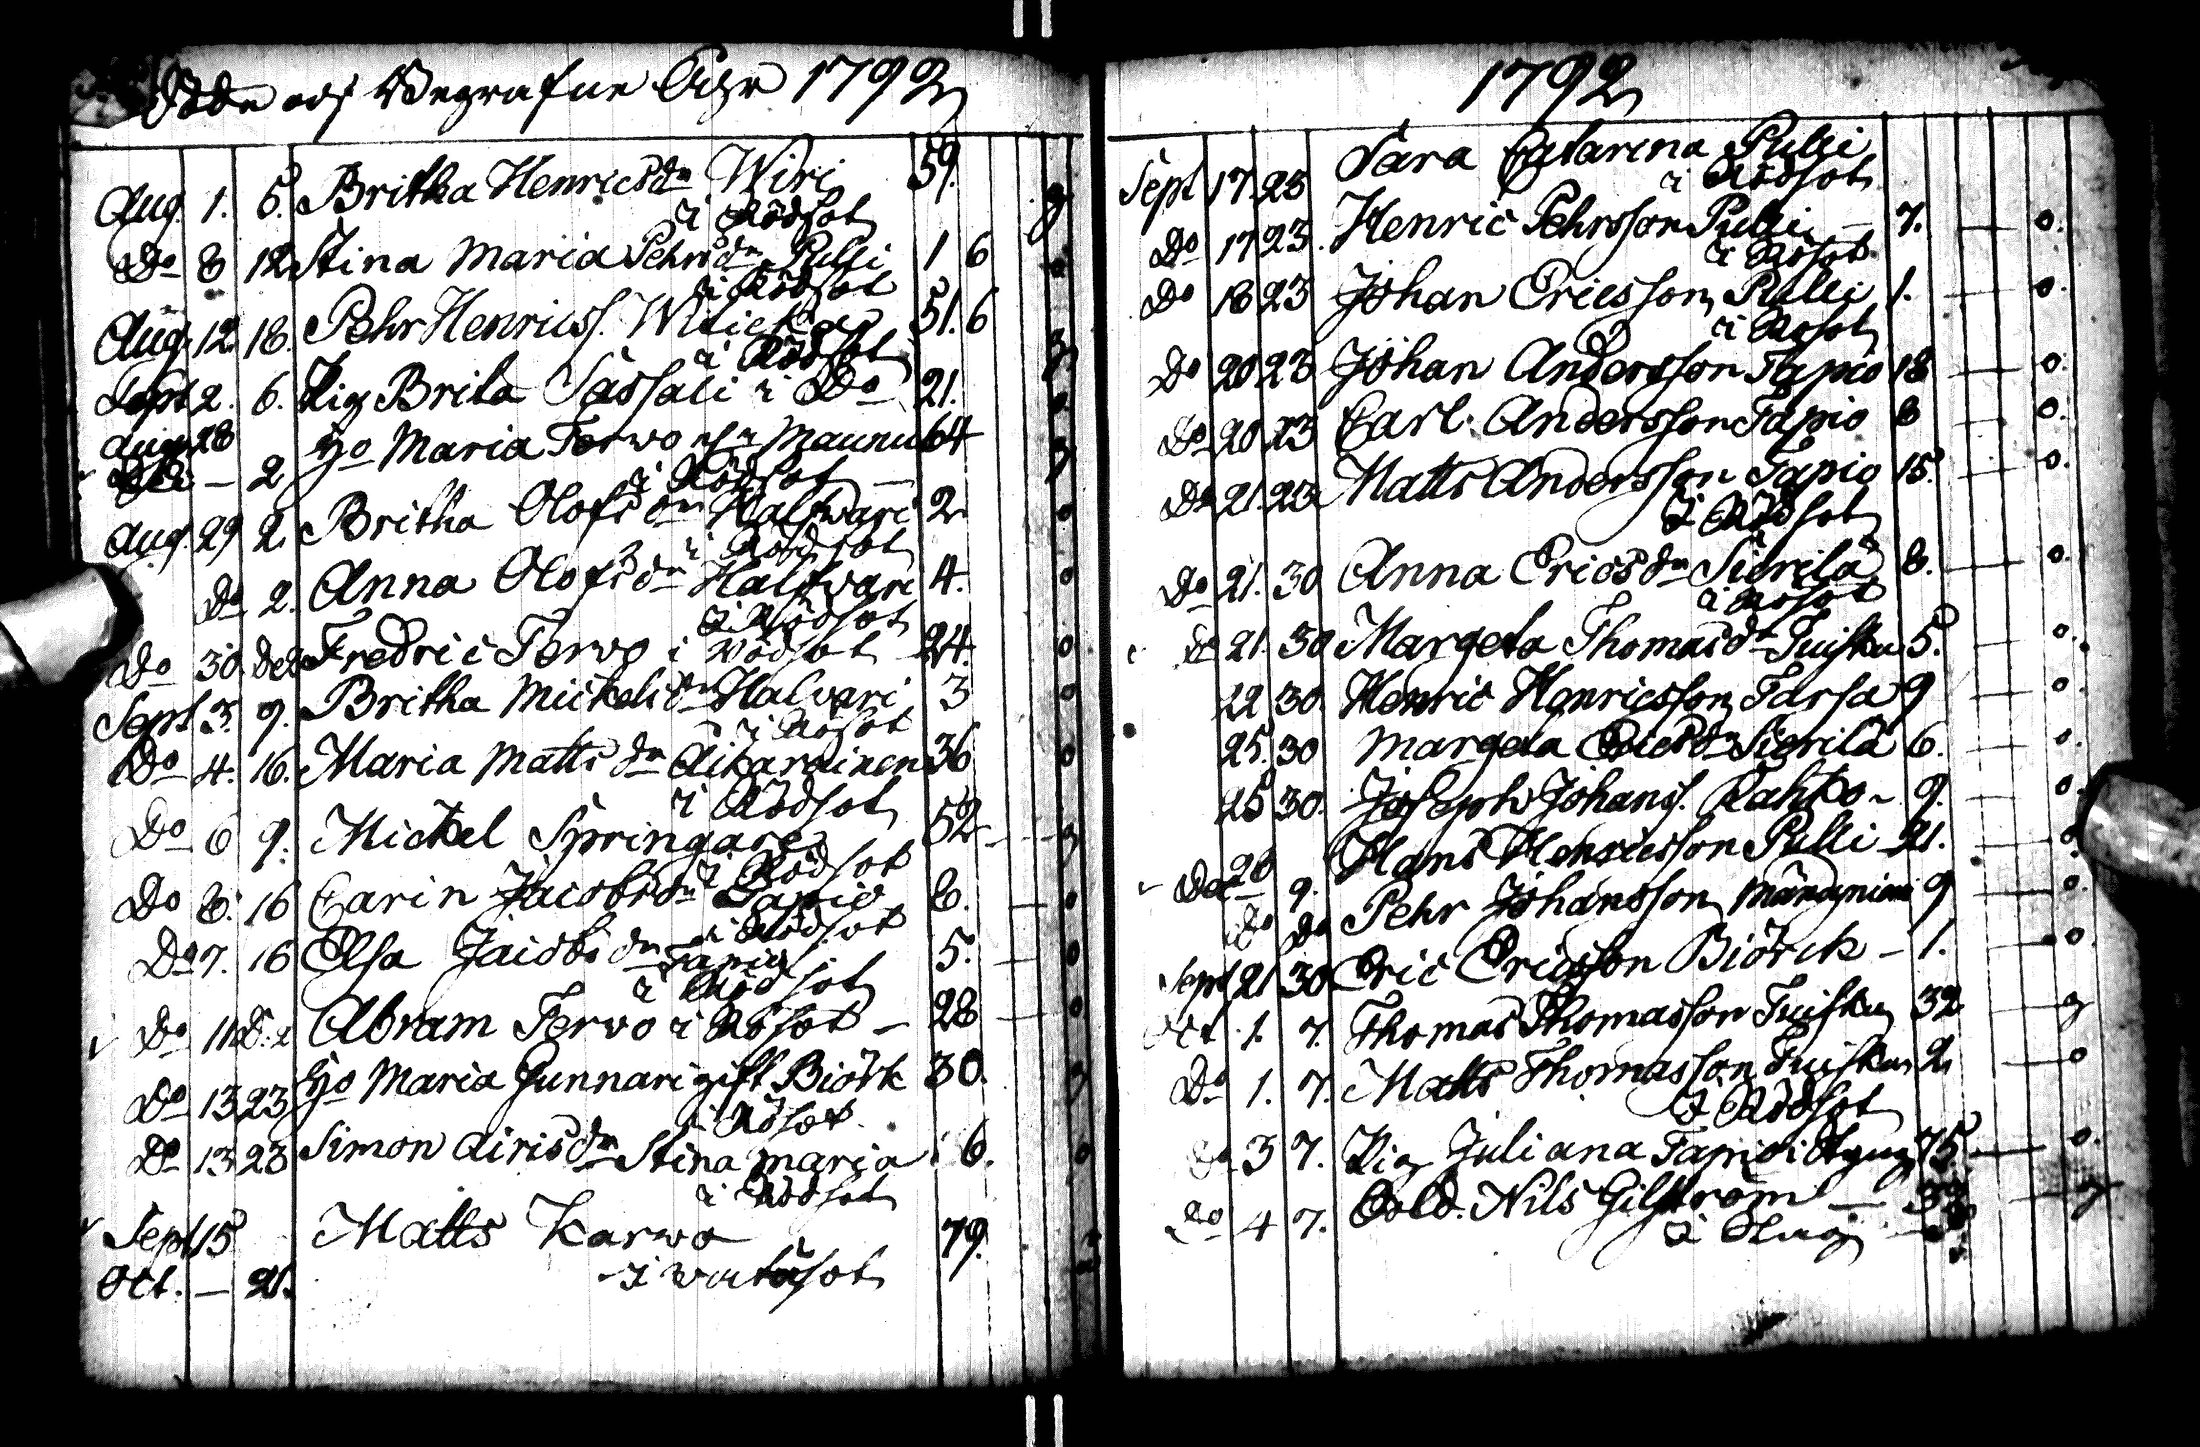 Döde och Begrafne Åhr 1792
Aug. 1. 5. Britha Henricsdr Wiri 59. g
i Rödsot
Do 8 12 Stina Maria Pehrsdr Pulli 1 6 o
i Rödsot
Aug. 12. 18. Pehr Henricss. 51. 6 g
i Rödsot
Sept 2. 6. Pig Brita Sassali i Do 21. o
Aug. 28 Ho Maria Terwo Maunu 64 g
2 i Rödsot
Aug. 29 2 Britha Olofsdr Halfwari 2 o
i Rödsot
Do 2. Anna Olofsdr Halfwari 4. o
i Rödsot
Do 30. Fredric Terwo i Rödsot 24. o
Sept 3. 9. Britha Mickelsdr Halvari 3 o
i Rösot
Do 4. 16. Maria Mattsdr Aikarainen 36 o
i Rödsot
Do 6 9. Mickel Springare 52 g
i Rödsot
Do 8. 16 Carin Jacobsdr Tapio 8. o
i Rödsot
Do 7. 16 Elsa Jacobsdr Tapio 5. o
i Rödsot
Do 11 Abram Terwo i Rösot 28 o
Do 13 23 Ho Maria Gunnari gift Biörk 30. g
i Rösot
Do 13 23 Simon Airis dr Stina Maria 6. o
i Rödsot
Sept 15 Matts Karwo 79.
Oct. — 21. i
1792
Sept 17 23 Sara Catarina Pulli
i Rödsot
Do 17 23. Henric Pehrsson Pulli 7. o.
i Rösot
Do 18 23 Johan Ericsson Pulli 1. o.
i Rösot
Do 20 23 Johan Andersson Tapio 18 o.
Do 20 23 Carl Andersson Tapio 8 o.
Do 21. 23 Matts Andersson Tapio 15. o.
I Rödsot
Do 21. 30 Anna Ericsdr Sierilä 8. o.
i Rösot
Do 21. 30 Margeta Thomasdr Tuisku 5. o.
22 30. Henric Henricsson Tarsa 9 o.
25. 30 Margeta Ericsdr Sierilä 6. o.
25 30. Joseph Johanss. Rahko 9. o.
28 Hans Henricsson Pulli 21. o
9.
Do Do Pehr Johansson 9 o.
Sept 21 30 Eric Ericsson Biörck 1. o.
Oct 1. 7. Thomas Thomasson Tuisku 32 g
Do 1. 7. Matts Thomasson Tuisku 2 o
I Rödsot
Do 3 7. Pig Juliana Tapio i 75. o.
Do 4 7. Sold. Nils Gilström g
i